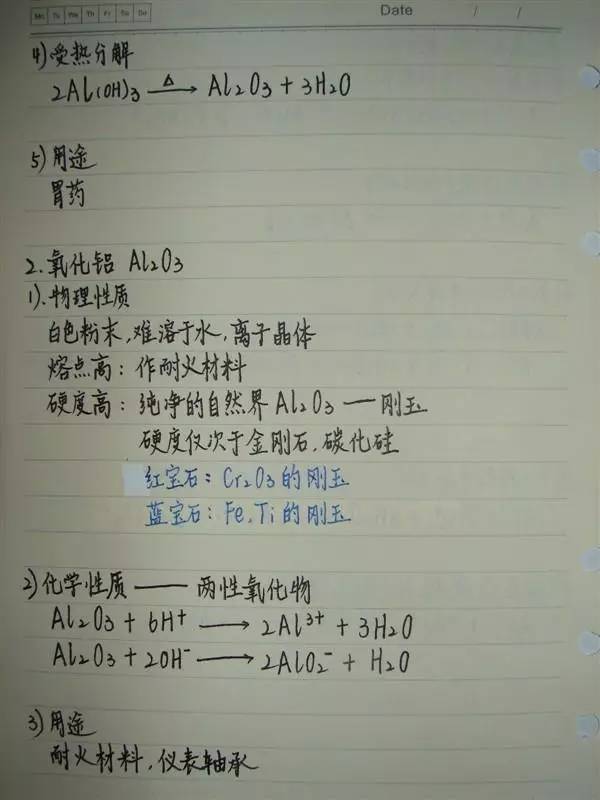 Mo Tu We Th Fr Sa Su
Date / /
4) 受热分解
2Al(OH)3 —△→ Al2O3 + 3H2O
5) 用途
胃药
2. 氧化铝 Al2O3
1). 物理性质
白色粉末, 难溶于水, 离子晶体
熔点高: 作耐火材料
硬度高: 纯净的自然界 Al2O3 — 刚玉
硬度仅次于金刚石, 碳化硅
红宝石: Cr2O3 的刚玉
蓝宝石: Fe, Ti 的刚玉
2) 化学性质 —— 两性氧化物
Al2O3 + 6H+ → 2Al3+ + 3H2O
Al2O3 + 2OH- → 2AlO2- + H2O
3) 用途
耐火材料, 仪表轴承